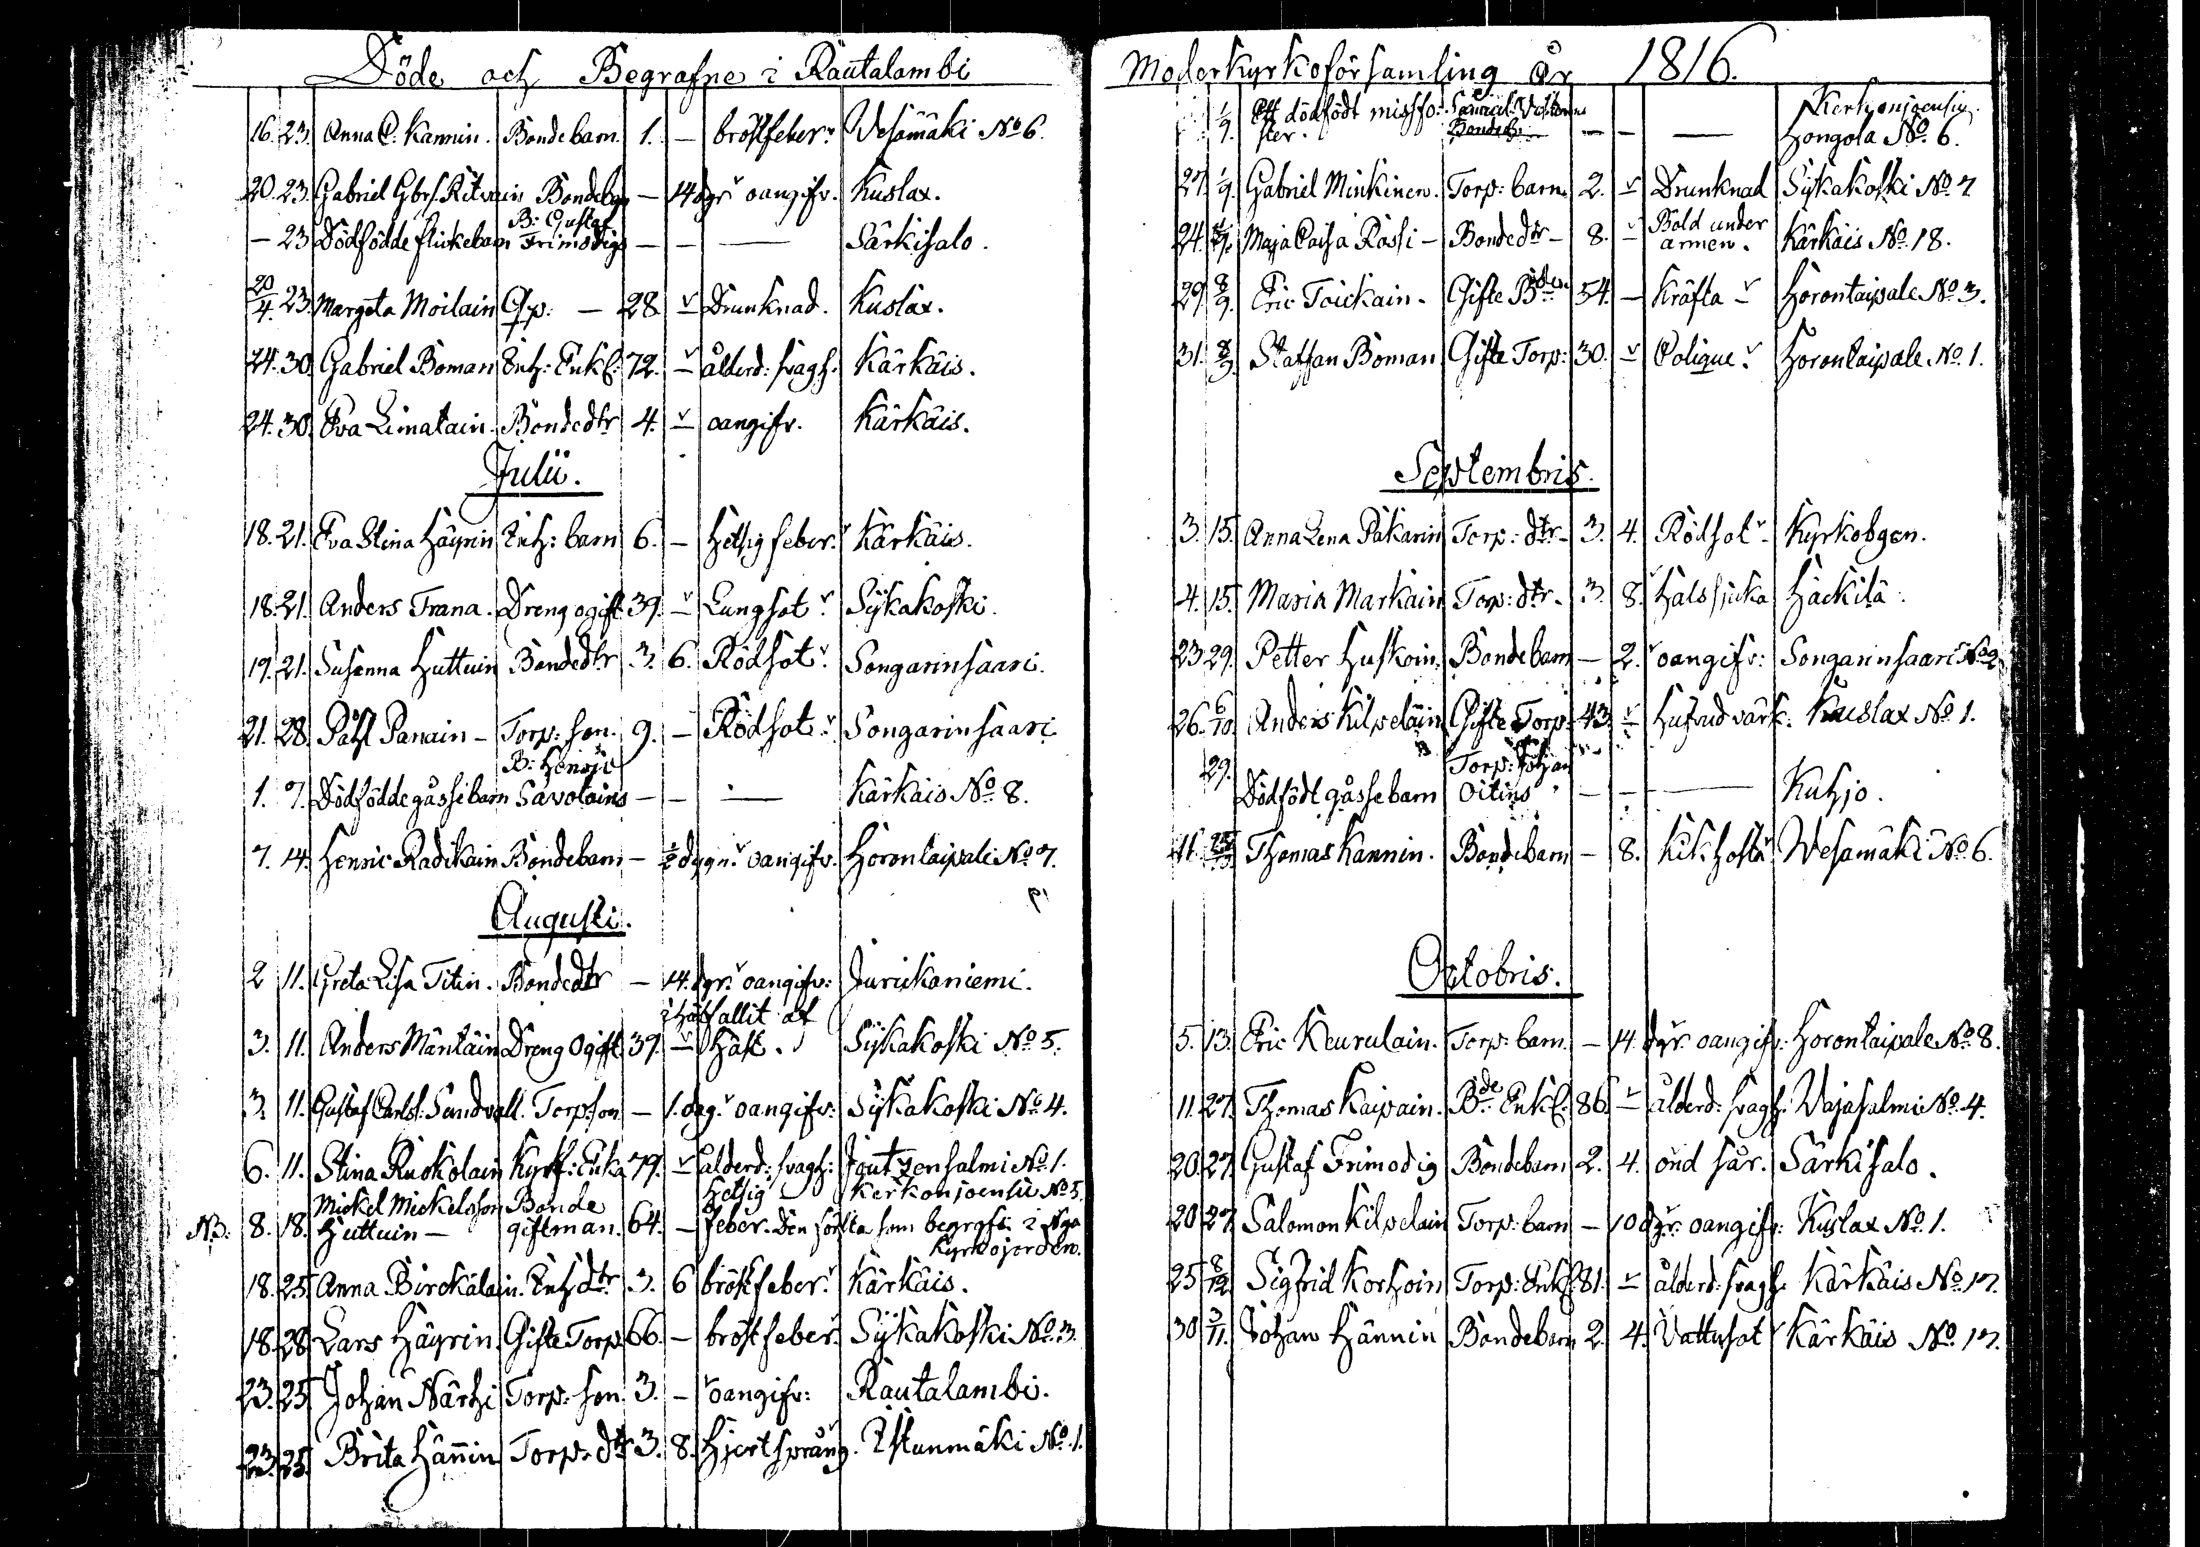 Döde och Begrafne i Rautalambi
16. 23. Anna C. Kannin. Bondebarn. 1. — bröstfeber. Wesamäki No 6.
20. 23. Gabriel Gbrs. Ritvain Bondebarn — 14 dgr oangifv. Kuslax.
B: Gustaf
— 23 Dödfödde flickebarn Frimodigs — — — Särkisalo.
20/4. 23. Margeta Moilain — 28 — Drunknad. Kuslax.
24. 30. Gabriel Boman Inh: Enkl: 72. — ålderd: svagh. Kärkäis.
24. 30. Eva Limatain. Bondedtr 4. — oangifv. Kärkäis.
Julii.
18. 21. Eva Stina Häyrin Inh: barn 6. — Hetsig feber. Kärkäis.
18. 21. Anders Trana. Dreng ogift 39. — Lungsot. Sÿkakoski.
19. 21. Susanna Huttuin Bondedtr 3. 6. Rödsot. Songarinsaari.
21. 28. Påhl Panain — Torp: son. 9. — Rödsot. Songarinsaari
B: Henric
1. 7. Dödfödde gåssebarn Savolains — — — Kärkäis No 8.
7. 14. Henric Radikain Bondebarn — ½ dygn. oangifv. Horontaipale No 7.
Augusti.
2 11. Greta Lisa Titin. Bondedtr — 14. dgr. oangifv: Jurickaniemi.
ihälfallit af
3. 11. Anders Mäntäin Dreng Ogift 39. — Häst. Sÿkakoski No 5.
3. 11. Gustaf Carlss: Sandvall. Torp: son — 1. dag. oangifv: Sÿkakoski No 4.
6. 11. Stina Ruokolain Kyrk: Enka 79. — ålderd: svagh: Joutzensalmi No 1.
Mickel Mickelsson Bonde Hetsig Kerkonjoensu No 5.
NB: 8. 18. Huttuin — giftman. 64. — feber. Den första som begrofs i Nya
Kyrkojorden.
18. 25 Anna Birckälain. Inh dtr. 3. 6 bröstfeber. Kärkäis.
18. 28 Lars Häyrin. Gifte Torp. 66. — bröstfeber. Sÿkakoski No 3.
23. 25 Johan Närhi Torp: son. 3. — oangifv: Rautalambi.
23. 25. Brita Hännin Torp: dtr 3. 8. Hjertsprång. Istunmäki No 1.
Moderkyrkoförsamling år 1816.
Kerkonjoensu
1/9. Ett dödfödt missfo: ster. Bondeb. — — — Hongola No 6.
27 1/9. Gabriel Minkinen. Torp: barn. 2. — Drunknad Sÿkakoski No 7
Böld under
24. Maja Caisa Rässi — Bondedtr — 8. — armen. Kärkäis No 18.
29. 8/9. Eric Toickain. Gifte Bden 54. — Kräfta — Horontaipale No 3.
31. 8/9. Staffan Boman Gifte Torp: 30. — Colique. Horontaipale No 1.
Septembris.
3. 15. Anna Lena Pakarin Torp: dtr — 3. 4. Rödsot. Kyrkobgen.
4. 15. Maria Markain Torp: dtr. 3. 8. Halssjuka Häckilä.
23 29. Petter Huskoin. Bondebarn — 2. oangifv: Songarinsaari No 2
26. 6/10. Anders Kilpeläin Gifte Torp. 43. — Hufvudvärk. Kuslax No 1.
Torp: Johan
29. Dödfödt gåssebarn Oitins — — — Kuhjo.
11. Thomas Kannin. Bondebarn — 8. Kikhosta Wesamäki No 6.
Octobris.
5. 13. Eric Keurulain. Torp: barn. — 14. dgr. oangifv: Horontaipale No 8.
11. 27. Thomas Kaipain. Bde Enkl: 86. — ålderd: svagh. Vajasalmi No 4.
20. 27. Gustaf Frimodig Bondebarn 2. 4. ond sår. Särkisalo.
20 27. Salomon Kilpelain Torp: barn — 10 dgr. oangifv: Kuslax No 1.
25 8/12 Sigfrid Korhoin Torp: Enkl: 81. — ålderd: svagh. Kärkäis No 17.
30 3/11. Johan Hännin Bondebarn 2. 4. Vattusot Kärkäis No 17.